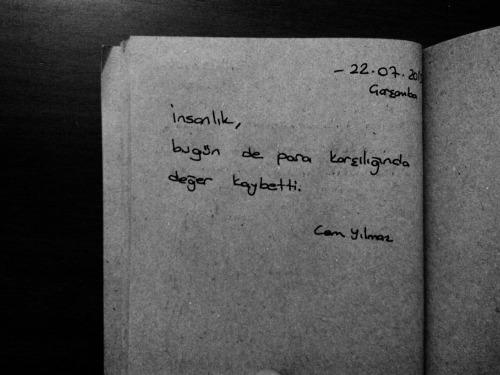 - 22.07.201
Çarşamba
insanlık,
bugün de para karşılığında
değer kaybetti.
Cem Yılmaz